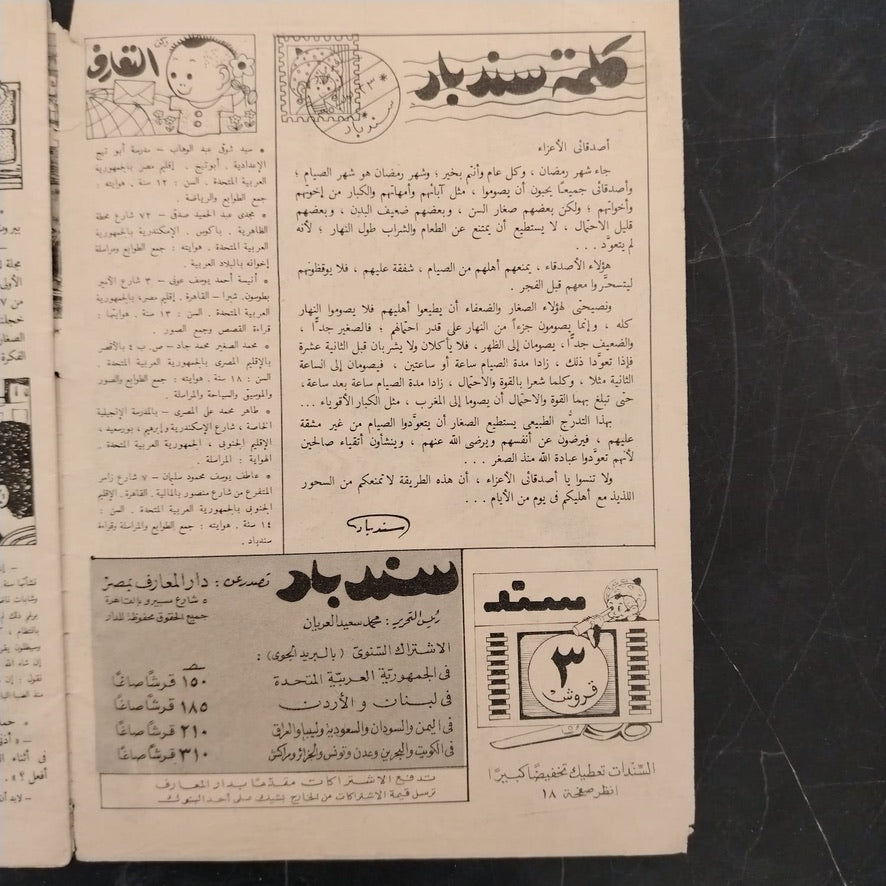 كلمة سندباد
سندباد
أصدقائى الأعزاء
جاء شهر رمضان ، وكل عام وأنتم بخير ؛ وشهر رمضان هو شهر الصيام ؛
وأصدقائى جميعًا يحبون أن يصوموا ، مثل آبائهم وأمهاتهم والكبار من إخوتهم
وأخواتهم ؛ ولكن بعضهم صغار السن ، وبعضهم ضعيف البدن ، وبعضهم
قليل الاحتمال ، لا يستطيع أن يمتنع عن الطعام والشراب طول النهار ؛ لأنه
لم يتعوّد . . .
هؤلاء الأصدقاء ، يمنعهم أهلهم من الصيام ، شفقة عليهم ، فلا يوقظونهم
ليتسحّروا معهم قبل الفجر .
ونصيحتى لهؤلاء الصغار والضعفاء أن يطيعوا أهليهم فلا يصوموا النهار
كله ، وإنما يصومون جزءاً من النهار على قدر احتمالهم ؛ فالصغير جدًّا ،
والضعيف جدًّا ، يصومان إلى الظهر ، فلا يأكلان ولا يشربان قبل الثانية عشرة
فإذا تعوّدا ذلك ، زادا مدة الصيام ساعة أو ساعتين ، فيصومان إلى الساعة
الثانية مثلا ، وكلما شعرا بالقوة والاحتمال ، زادا مدة الصيام ساعة بعد ساعة ،
حتى تبلغ بهما القوة والاحتمال أن يصوما إلى المغرب ، مثل الكبار الأقوياء . . .
بهذا التدرّج الطبيعى يستطيع الصغار أن يتعوّدوا الصيام من غير مشقة
عليهم ، فيرضون عن أنفسهم ويرضى الله عنهم ، وينشأون أتقياء صالحين
لأنهم تعوّدوا عبادة الله منذ الصغر . . .
ولا تنسوا يا أصدقائى الأعزاء ، أن هذه الطريقة لا تمنعكم من السحور
اللذيذ مع أهليكم فى يوم من الأيام . . .
سندباد
ركن
التعارف
• سيد شوقى عبد الوهاب – مدرسة أبو تيج
الإعدادية . أبوتيج . إقليم مصر بالجمهورية
العربية المتحدة . السن : ١٢ سنة . هوايته :
جمع الطوابع والرياضة .
• مجدى عبد الحميد صدقى – ٧٢ شارع محطة
الظاهرية . باكوس . الإسكندرية بالجمهورية
العربية المتحدة . هوايته : جمع الطوابع ومراسلة
إخوانه بالبلاد العربية .
• أنيسة أحمد يوسف عونى – ٣ شارع الأمير
بطوسون . شبرا – القاهرة . إقليم مصر ، بالجمهورية
العربية المتحدة . السن : ١٣ سنة . هوايتها :
قراءة القصص وجمع الصور .
• محمد الصغير محمد جاد – ص . ب ٤ بالأقصر
بالإقليم المصرى بالجمهورية العربية المتحدة .
السن : ١٨ سنة . هوايته : جمع الطوابع والصور
والموسيقى والسياحة والمراسلة .
• طاهر محمد على المصرى – بالمدرسة الإنجيلية
الخاصة ، شارع الإسكندرية وإبرهيم ، بورسعيد ،
الإقليم الجنوبى ، الجمهورية العربية المتحدة .
الهواية : المراسلة .
• عاطف يوسف محمود سليمان – ٧ شارع
المتفرع من شارع منصور بالمالية . القاهرة . الإقليم
الجنوبى بالجمهورية العربية المتحدة . السن :
١٤ سنة . هوايته : جمع الطوابع والمراسلة وقراءة
سندباد .
سندباد
تصدر عن : دار المعارف بمصر
٥ شارع مسبيرو بالقاهرة
جميع الحقوق محفوظة للدار
رئيس التحرير : محمد سعيد العريان
الاشتراك السنوى ( بالبريد الجوى ) :
فى الجمهوريّة العربيّة المتحدة ١٥٠ قرشًا صاغًا
فى لبنان و الأردن ١٨٥ قرشًا صاغًا
فى اليمن والسودان والسعودية وليبيا والعراق ٢١٠ قرشًا صاغًا
فى الكويت والبحرين وعدن وتونس والجزائر ومراكش ٣١٠ قرشًا صاغًا
تدفع الاشتراكات مقدمًا بدار المعارف
ترسل قيمة الاشتراكات من الخارج بشيك على أحد البنوك
سند
٣
قروش
السّندات تعطيك تخفيضًا كبيرًا
انظر صفحة ١٨